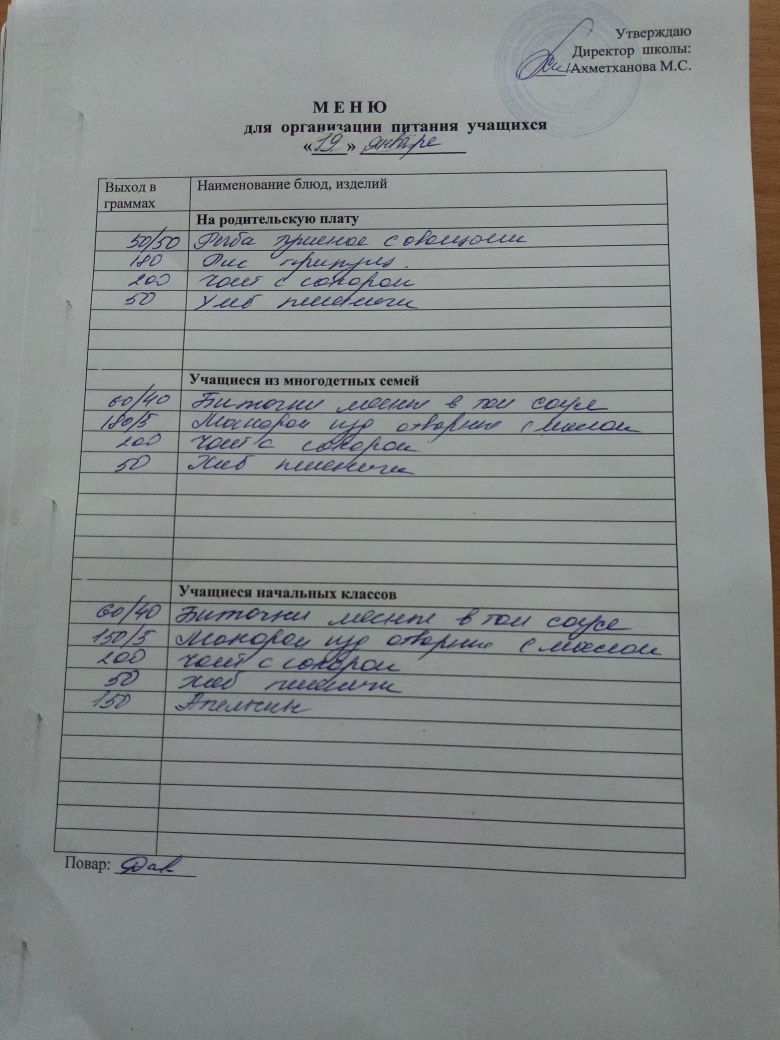 Утверждаю
Директор школы:
Ахметханова М.С.
М Е Н Ю
для организации питания учащихся
«19» января
Выход в граммах Наименование блюд, изделий
На родительскую плату
50/50 Рыба тушеная с овощами
180 Рис припущ.
200 Чай с сахаром
50 Хлеб пшеничн
Учащиеся из многодетных семей
60/40 Биточки мясные в том соусе
180/5 Макарон изд отварные с маслом
200 Чай с сахаром
50 Хлеб пшеничн
Учащиеся начальных классов
60/40 Биточки мясные в том соусе
150/5 Макарон изд отварные с маслом
200 Чай с сахаром
50 Хлеб пшеничн
150 Апельсин
Повар: